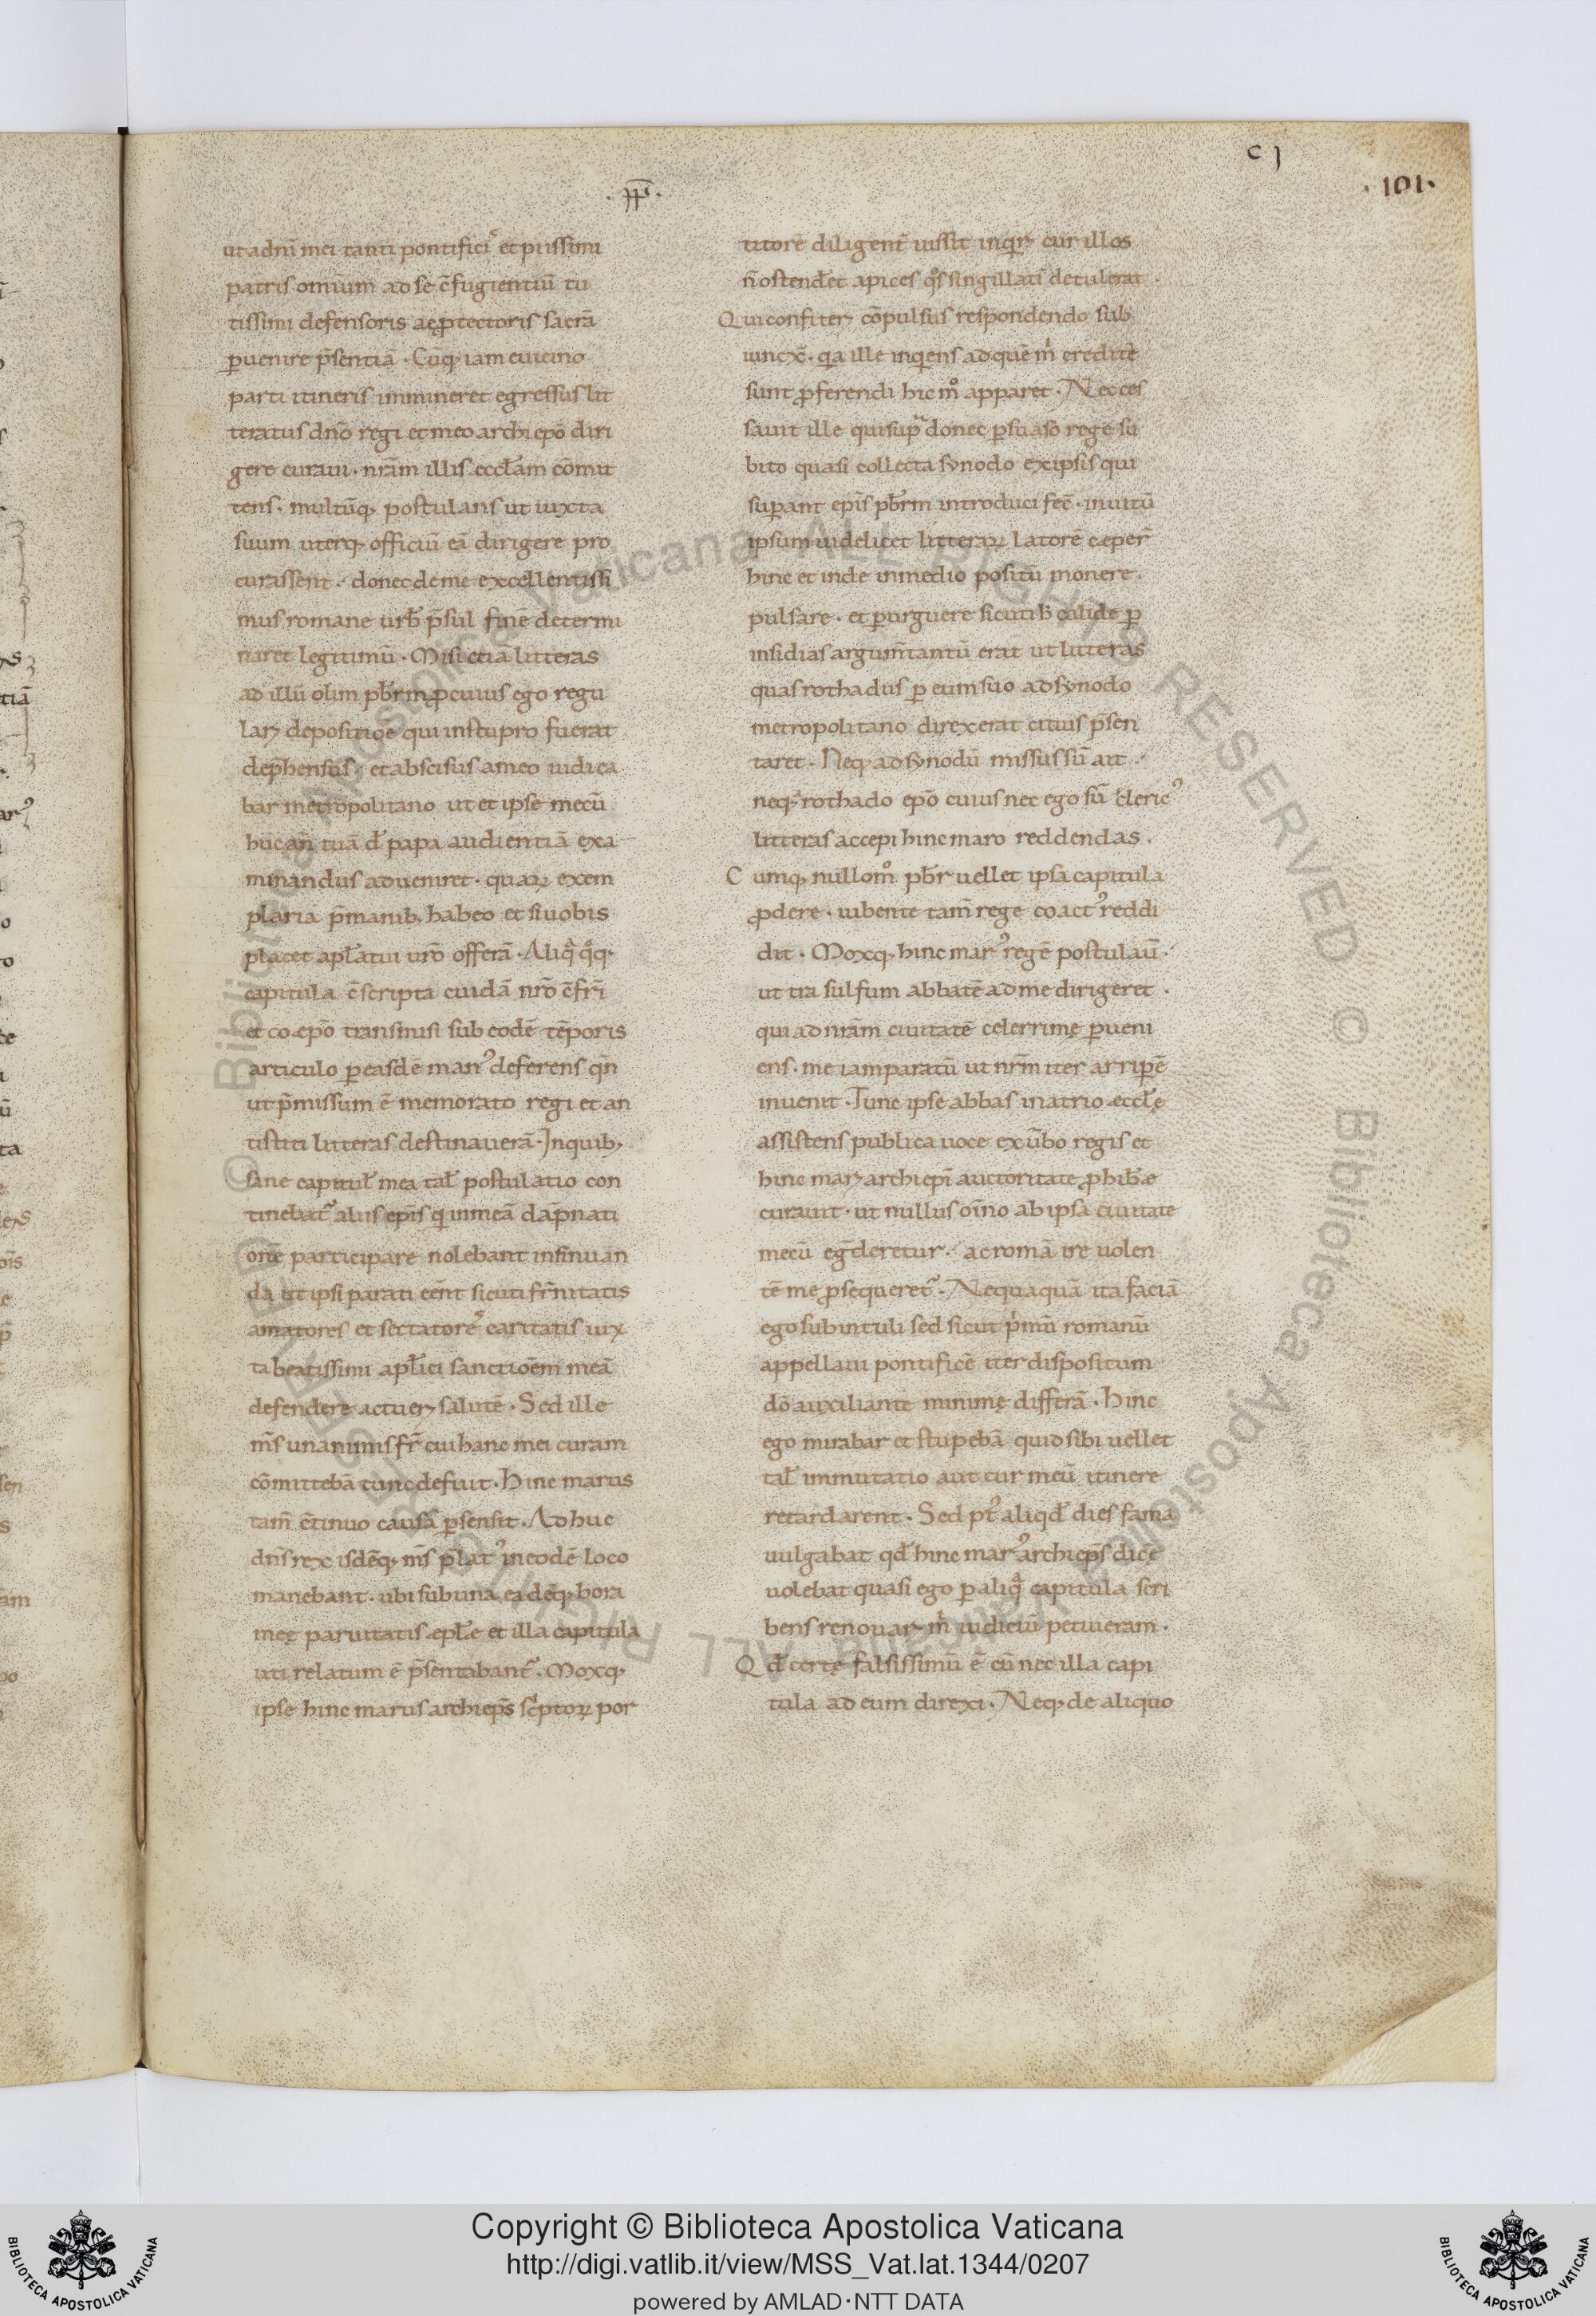 cj
·101·
·pp̄·
ut adnm̄ mei tanti pontificiˢ et piissimi
patris omium̄ ad se c̄fugientiū tu
tissimi defensoris ac ꝓtectoris sacrā
ꝑuenire p̄sentiā · Cūq; iam euicino
parti itineris immineret egressus lit
teratus dnō regi et meo archiepō diri
gere curaui · nr̄am illis eccłam cōmit
tens · multūq; postulans ut iuxta
suum uterq; officiū eā dirigere pro
curassent · donec deme excellentissi
mus romane urƀ p̄sul finē determi
naret legitimū · Misi etiā litteras
ad illū olim pƀrm ꝓcuius ego regu
larꝫ depositioe qui instupro fuerat
dep̄hensus · et abscisus ameo iudica
bar metropolitano ut et ipse mecū
huc añ tuā đ papa audientiā exa
minandus adueniret · quaꝝ exem
plaria p̄manib; habeo et siuobis
placet apłatui ur̄o offerā · Aliq̄ q̊q;
capitula c̄scripta cuidā nr̄o c̄fr̄i
et coepō transmisi sub eodē tēporis
articulo ꝑeasdē manꝰ deferens qn̄
ut p̄missum ē memorato regi et an
tistiti litteras destinauerā · Inquib;
sane capituł mea tał postulatio con
tinebat᷑ aliis epīs qͥ inmeā dāpnati
onē participare nolebant insinuan
da ut ipsi parati eēnt sicuti fr̄nitatis
amatores et sectatoreˢ caritatis iux
ta beatissimi apłici sanctioēm meā
defendere ac tuerꝫ salutē · Sed ille
m̄s unanimis fr̄ cui hanc mei curam
cōmittebā tunc defuit · Hinc marus
tam̄ c̄tinuo causā ꝑsensit · Adhuc
dn̄s rex isdēq; m̄s p̄latꝰ ineodē loco
manebant · ubi sub una eadēq; hora
meę paruitatis epłe et illa capitula
uti relatum ē p̄sentabant᷑ · Moxq;
ipse hinc marus archiep̄s sc̄ptoꝝ por
titorē diligent̄ iussit inqͥrꝫ cur illos
n̄ostendēt apices qͦs singillati detulerat ·
Qui confiterꝫ cōpulsus respondendo sub
iunex̄ · qͥa ille inqͥrens ad quē mͥ credite
sunt ꝓferendi hic m̊ apparet · Nec ces
sauit ille quisupͣ donec ꝑsuaso rege su
bito quasi collecta synodo exipsis qui
suꝑant epīs pƀrm introduci fec̄ · inuitū
ipsum uidelicet litteraꝝ latorē ceꝑer̄
hinc et inde inmedio positū monere ·
pulsare · et ꝑurguere sicuti ƀ calide ꝑ
insidias argum̄tantū erat ut litteras
quas rothadus ꝑ eum suo ad synodo
metropolitano direxerat citius p̄sen
taret · Neq; ad synodū missus sū ait ·
neq; rothado epō cuius nec ego sū clericꝰ
litteras accepi hinc maro reddendas ·
Cumq; nullom̊ pƀr uellet ipsa capitula
ꝓdere · iubente tam̄ rege coactꝰ reddi
dit · Moxq; hinc marꝰ regē postulau̅ ·
ut tra sulfum abbatē ad me dirigeret ·
qui ad nr̄am ciuitatē celerrimę ꝑueni
ens · me iam paratū ut nr̄m iter arriꝑē
inuenit · Tunc ipse abbas inatrio eccłę
assistens publica uoce exūbo regis et
hinc marꝫ archiepī auctoritate ꝓhibͤe
curauit · ut nullus oīno ab ipsa ciuitate
mecū eg̅deretur · ac romā ire uolen
tē me ꝓsequeret᷑ · Nequaquā ita faciā
ego subintuli sed sicut pͥmū romanū
appellaui pontificē iter dispositum
dō auxiliante minimę differā · Hinc
ego mirabar et stupebā quid sibi uellet
tał immutatio aut cur meū itinere
retardarent · Sed pᷓt aliqđ dies fama
uulgabat qđ hinc marꝰ archiep̄s dicē
uolebat quasi ego ꝑ aliqͣ capitula scri
bens renouarꝫ mͥ iudiciū petiueram ·
Qđ certę falsissimū ē cū nec illa capi
tula ad eum direxi · Neq; de aliquo
© Biblioteca Apostolica Vaticana ALL RIGHTS RESERVED © Biblioteca Apostolica Vaticana ALL RIGHTS RESERVED
Copyright © Biblioteca Apostolica Vaticana
http://digi.vatlib.it/view/MSS_Vat.lat.1344/0207
powered by AMLAD·NTT DATA
BIBLIOTECA APOSTOLICA VATICANA
BIBLIOTECA APOSTOLICA VATICANA